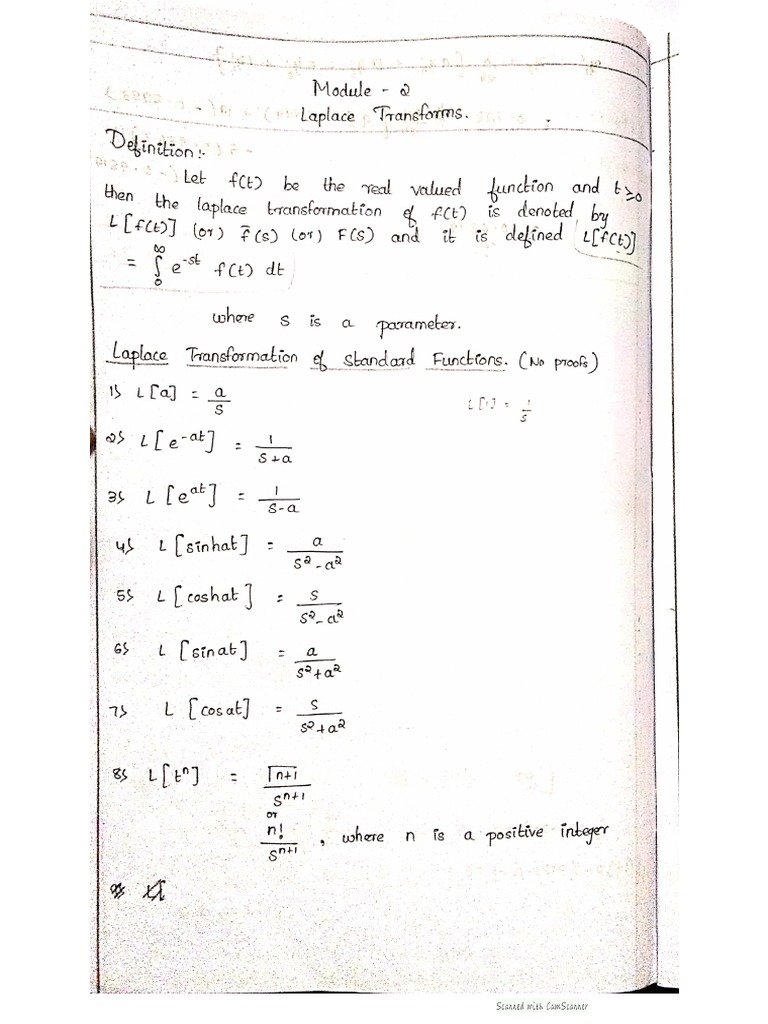 Module - 2
Laplace Transforms.
Definition:-
Let f(t) be the real valued function and t≥0
then the laplace transformation of f(t) is denoted by
L[f(t)] (or) f̄(s) (or) F(S) and it is defined L[f(t)]
= ∫₀^∞ e^-st f(t) dt
where s is a parameter.
Laplace Transformation of Standard Functions. (No proofs)
1) L[a] = a/s
L[1] = 1/s
2) L[e^-at] = 1/(s+a)
3) L[e^at] = 1/(s-a)
4) L[sinhat] = a/(s²-a²)
5) L[coshat] = s/(s²-a²)
6) L[sinat] = a/(s²+a²)
7) L[cosat] = s/(s²+a²)
8) L[t^n] = Γ(n+1)/s^n+1
or
n!/s^n+1, where n is a positive integer
Scanned with CamScanner